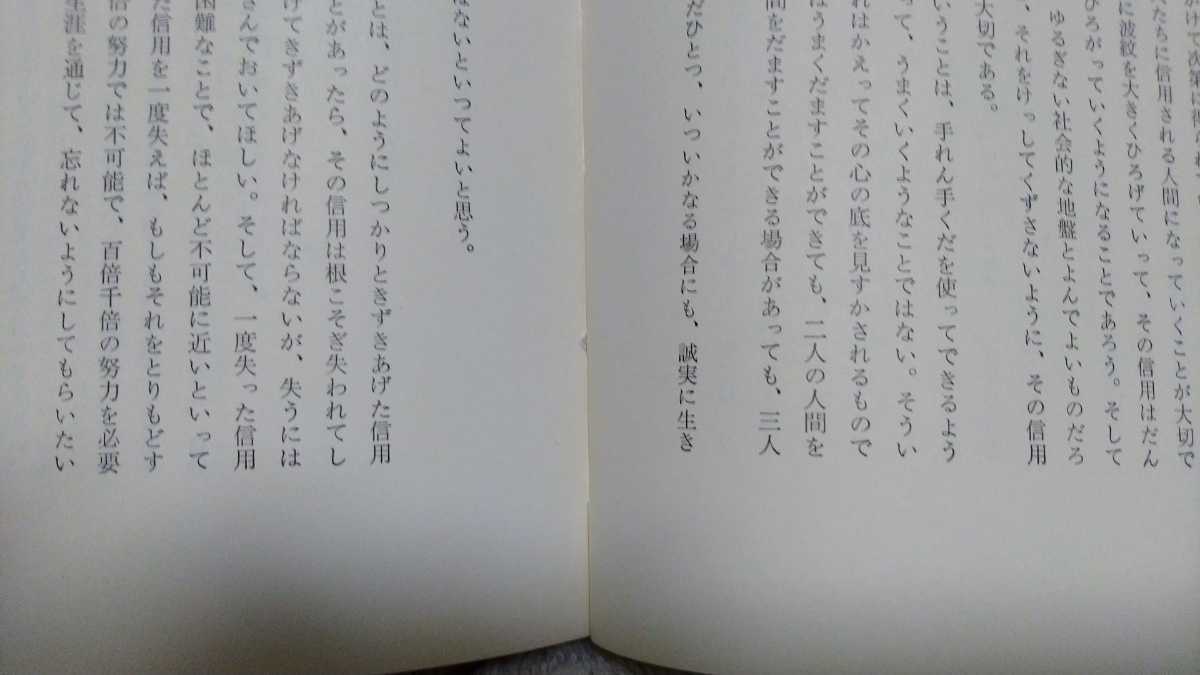 かけて次第に
たちに信用される人間になっていくことが大切で
に波紋を大きくひろげていって、その信用はだん
ひろがっていくようになることであろう。そして
ゆるぎない社会的な地盤とよんでよいものだろ
、それをけっしてくずさないように、その信用
大切である。
いうことは、手れん手くだを使ってできるよう
って、うまくいくようなことではない。そうい
れはかえってその心の底を見すかされるもので
はうまくだますことができても、二人の人間を
間をだますことができる場合があっても、三人
だひとつ、いついかなる場合にも、誠実に生き
はないといってよいと思う。
とは、どのようにしっかりときずきあげた信用
とがあったら、その信用は根こそぎ失われてし
けてきずきあげなければならないが、失うには
さんでおいてほしい。そして、一度失った信用
困難なことで、ほとんど不可能に近いといって
た信用を一度失えば、もしもそれをとりもどす
倍の努力では不可能で、百倍千倍の努力を必要
生涯を通じて、忘れないようにしてもらいたい